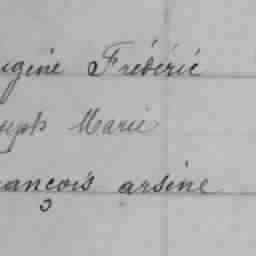 ugène Frédéric
seph Marie
rançois arsène